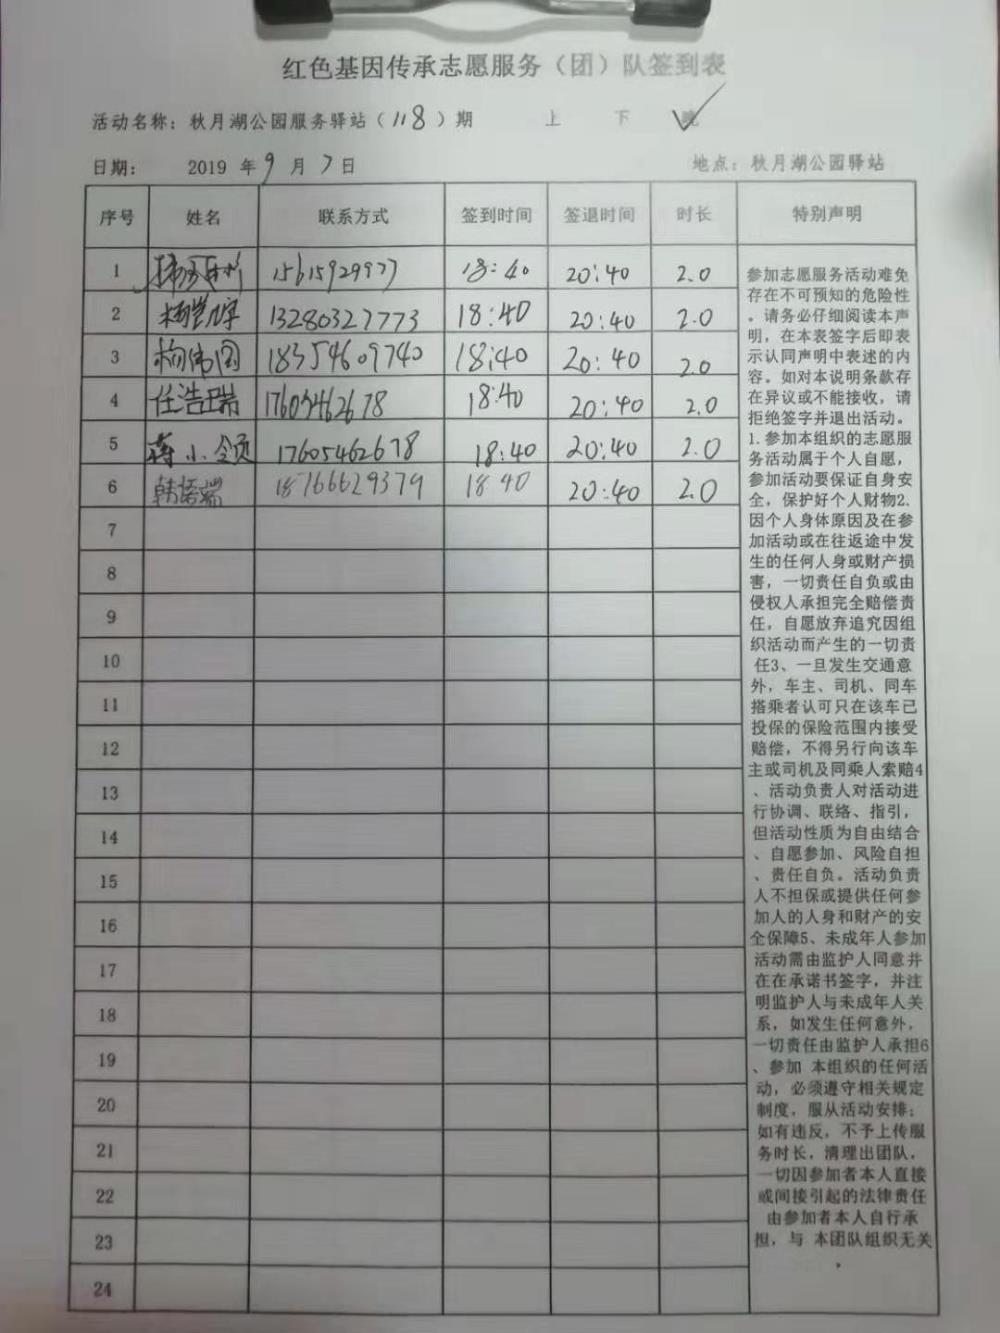 红色基因传承志愿服务（团）队签到表
活动名称：秋月湖公园服务驿站（118）期 上 下
日期： 2019 年 9 月 7 日 地点：秋月湖公园驿站
序号 姓名 联系方式 签到时间 签退时间 时长 特别声明
1 15615929977 18:40 20:40 2.0
2 13280327773 18:40 20:40 2.0
3 杨伟国 18354609740 18:40 20:40 2.0
4 任浩瑞 17605462678 18:40 20:40 2.0
5 蒋小领 17605462678 18:40 20:40 2.0
6 18766629379 18 40 20:40 2.0
7
8
9
10
11
12
13
14
15
16
17
18
19
20
21
22
23
24
参加志愿服务活动难免
存在不可预知的危险性
。请务必仔细阅读本声
明，在本表签字后即表
示认同声明中表述的内
容。如对本说明条款存
在异议或不能接收，请
拒绝签字并退出活动。
1.参加本组织的志愿服
务活动属于个人自愿，
参加活动要保证自身安
全，保护好个人财物2.
因个人身体原因及在参
加活动或在往返途中发
生的任何人身或财产损
害，一切责任自负或由
侵权人承担完全赔偿责
任，自愿放弃追究因组
织活动而产生的一切责
任3、一旦发生交通意
外，车主、司机、同车
搭乘者认可只在该车已
投保的保险范围内接受
赔偿，不得另行向该车
主或司机及同乘人索赔4
、活动负责人对活动进
行协调、联络、指引，
但活动性质为自由结合
、自愿参加、风险自担
、责任自负。活动负责
人不担保或提供任何参
加人的人身和财产的安
全保障5、未成年人参加
活动需由监护人同意并
在在承诺书签字，并注
明监护人与未成年人关
系，如发生任何意外，
一切责任由监护人承担6
、参加 本组织的任何活
动，必须遵守相关规定
制度，服从活动安排；
如有违反，不予上传服
务时长，清理出团队，
一切因参加者本人直接
或间接引起的法律责任
由参加者本人自行承
担，与 本团队组织无关
。